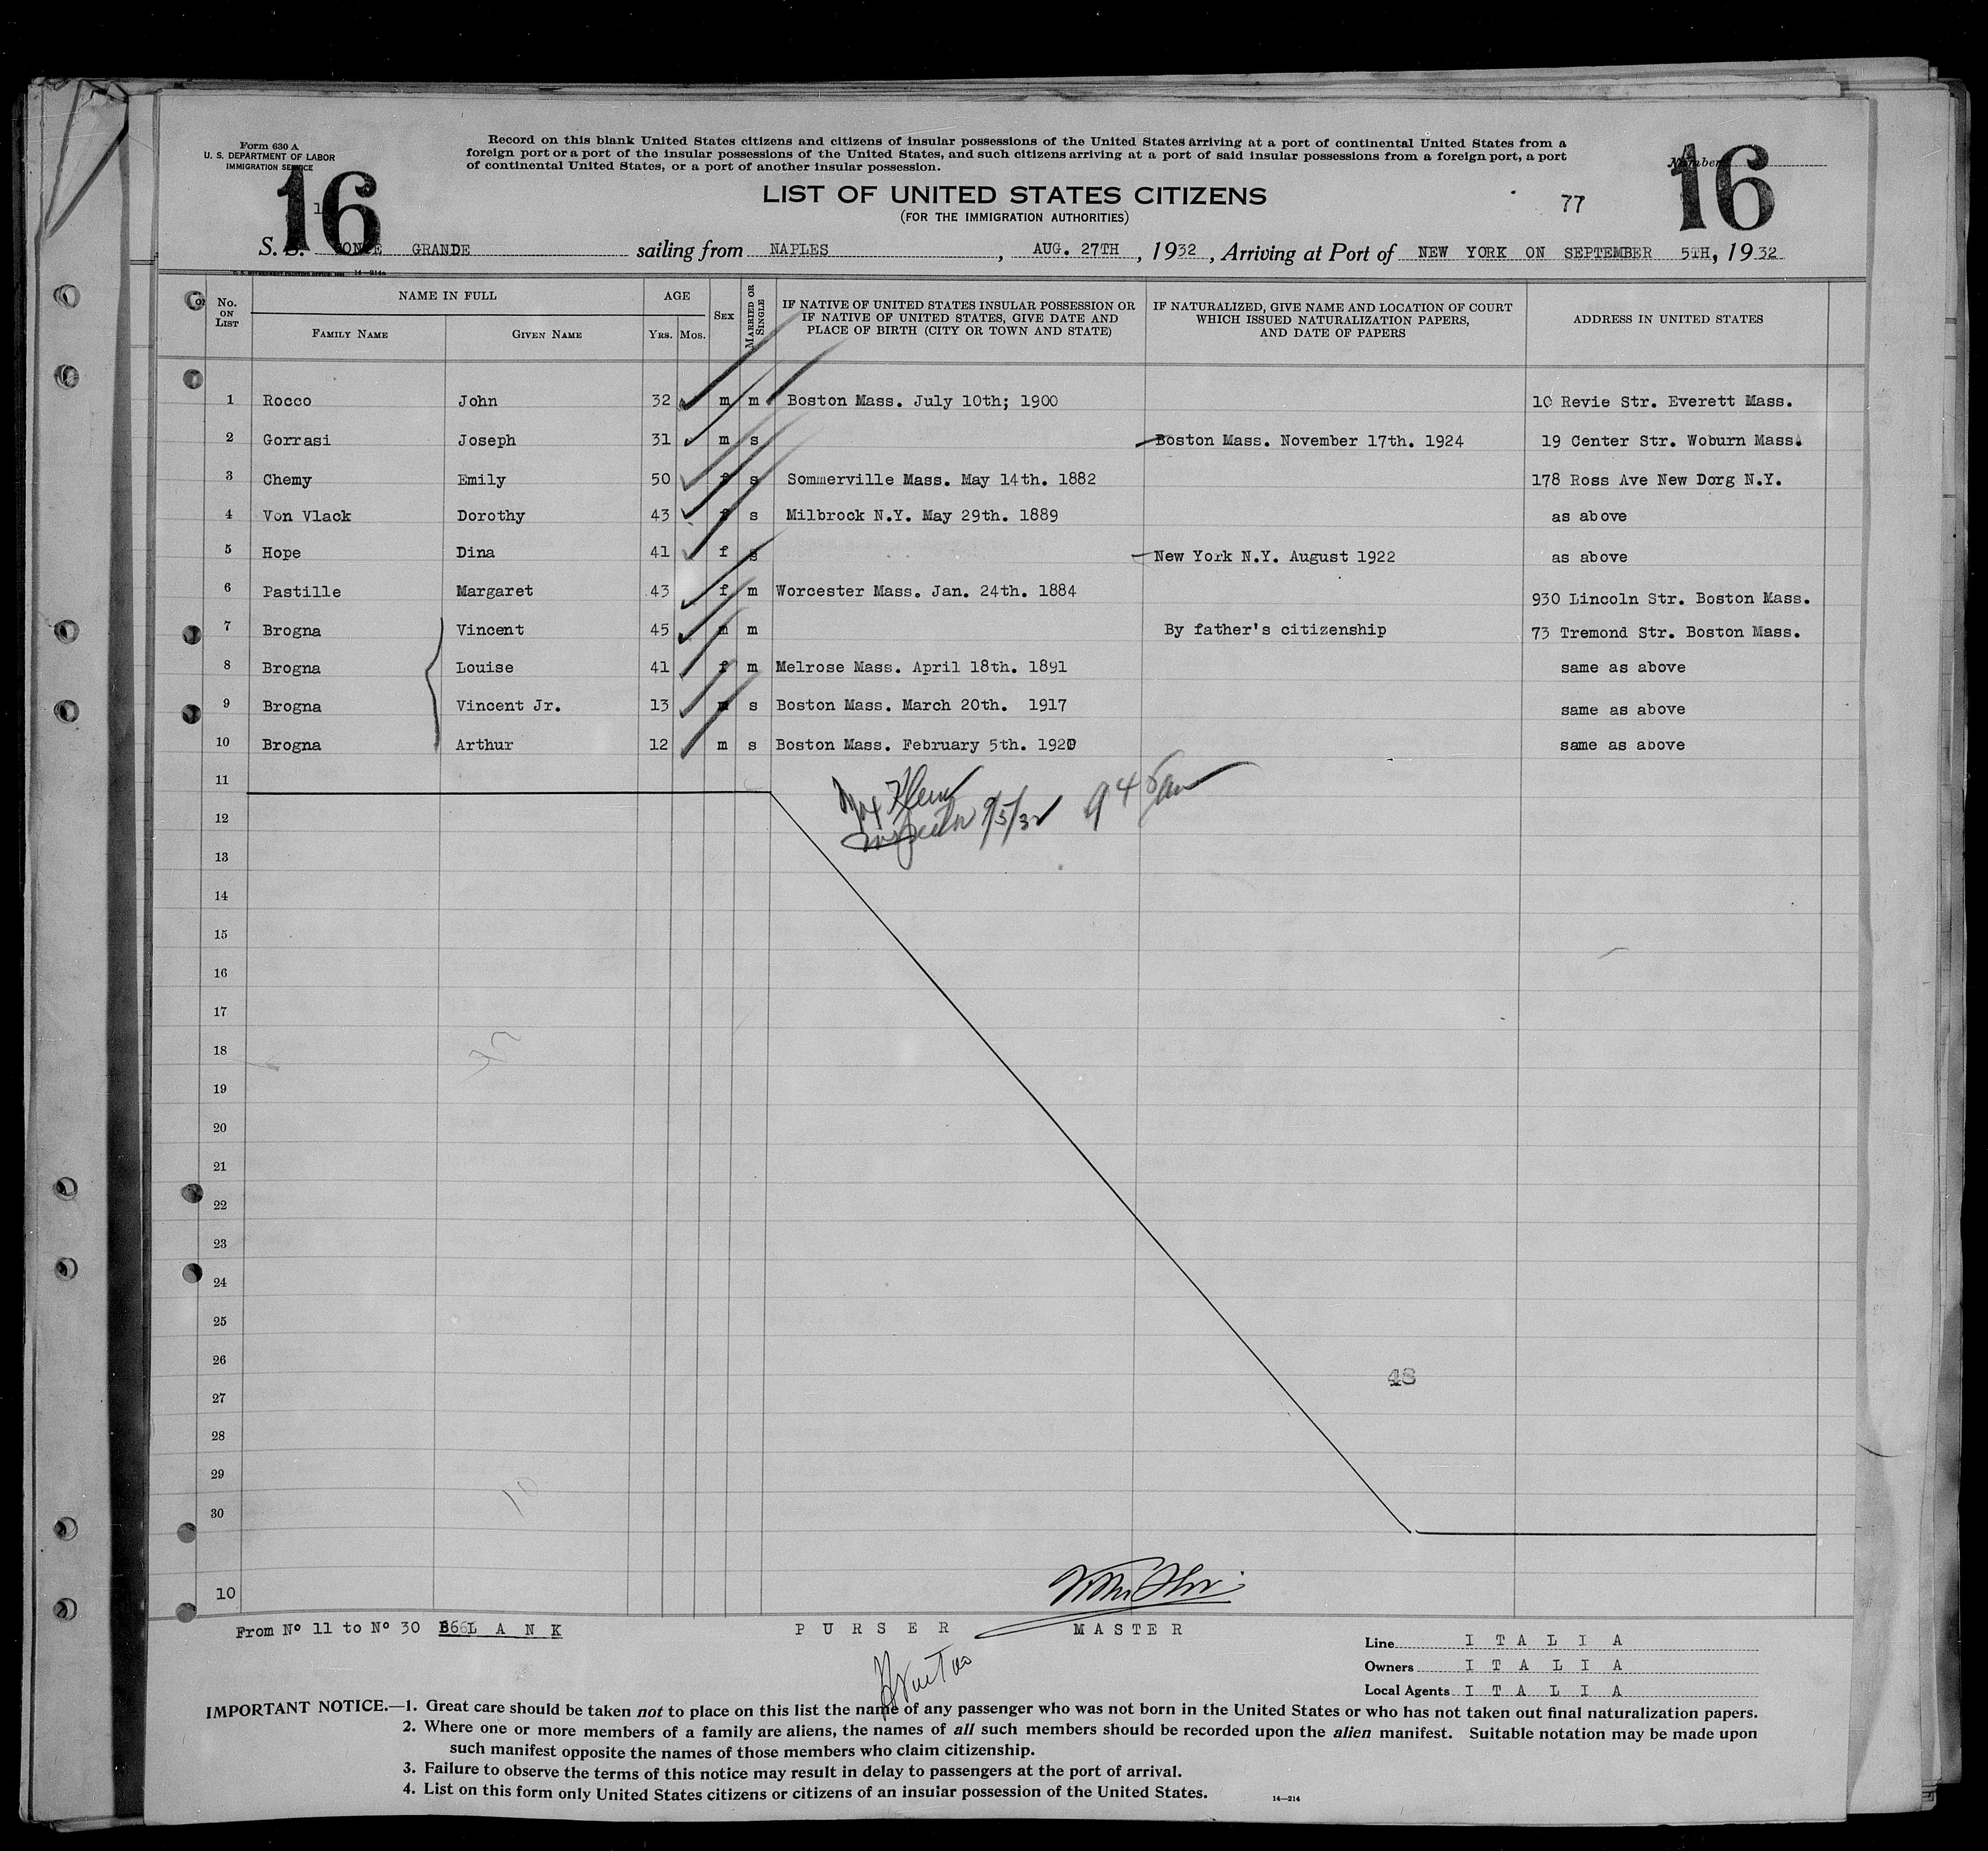 Form 630 A
U. S. DEPARTMENT OF LABOR
IMMIGRATION SERVICE
Record on this blank United States citizens and citizens of insular possessions of the United States arriving at a port of continental United States from a
foreign port or a port of the insular possessions of the United States, and such citizens arriving at a port of said insular possessions from a foreign port, a port
of continental United States, or a port of another insular possession.
Number
16
16
LIST OF UNITED STATES CITIZENS
(FOR THE IMMIGRATION AUTHORITIES)
77
S. S. CONTE GRANDE sailing from NAPLES, AUG. 27TH, 1932, Arriving at Port of NEW YORK ON SEPTEMBER 5TH, 1932
14—214a
No. ON LIST
NAME IN FULL
FAMILY NAME GIVEN NAME
AGE
YRS. MOS.
SEX
MARRIED OR SINGLE
IF NATIVE OF UNITED STATES INSULAR POSSESSION OR
IF NATIVE OF UNITED STATES, GIVE DATE AND
PLACE OF BIRTH (CITY OR TOWN AND STATE)
IF NATURALIZED, GIVE NAME AND LOCATION OF COURT
WHICH ISSUED NATURALIZATION PAPERS,
AND DATE OF PAPERS
ADDRESS IN UNITED STATES
1 Rocco John 32 m m Boston Mass. July 10th; 1900 10 Revie Str. Everett Mass.
2 Gorrasi Joseph 31 m s Boston Mass. November 17th. 1924 19 Center Str. Woburn Mass.
3 Chemy Emily 50 f s Sommerville Mass. May 14th. 1882 178 Ross Ave New Dorg N.Y.
4 Von Vlack Dorothy 43 f s Milbrock N.Y. May 29th. 1889 as above
5 Hope Dina 41 f s New York N.Y. August 1922 as above
6 Pastille Margaret 43 f m Worcester Mass. Jan. 24th. 1884 930 Lincoln Str. Boston Mass.
7 Brogna Vincent 45 m m By father's citizenship 73 Tremond Str. Boston Mass.
8 Brogna Louise 41 f m Melrose Mass. April 18th. 1891 same as above
9 Brogna Vincent Jr. 13 m s Boston Mass. March 20th. 1917 same as above
10 Brogna Arthur 12 m s Boston Mass. February 5th. 1920 same as above
11
12
Inspector 9/5/32 9 45 am
13
14
15
16
17
18
19
20
21
22
23
24
25
26
48
27
28
29
30
10
From Nº 11 to Nº 30 B L A N K
P U R S E R
M A S T E R
Line I T A L I A
Owners I T A L I A
Local Agents I T A L I A
IMPORTANT NOTICE.—1. Great care should be taken not to place on this list the name of any passenger who was not born in the United States or who has not taken out final naturalization papers.
2. Where one or more members of a family are aliens, the names of all such members should be recorded upon the alien manifest. Suitable notation may be made upon
such manifest opposite the names of those members who claim citizenship.
3. Failure to observe the terms of this notice may result in delay to passengers at the port of arrival.
4. List on this form only United States citizens or citizens of an insular possession of the United States.
14—214